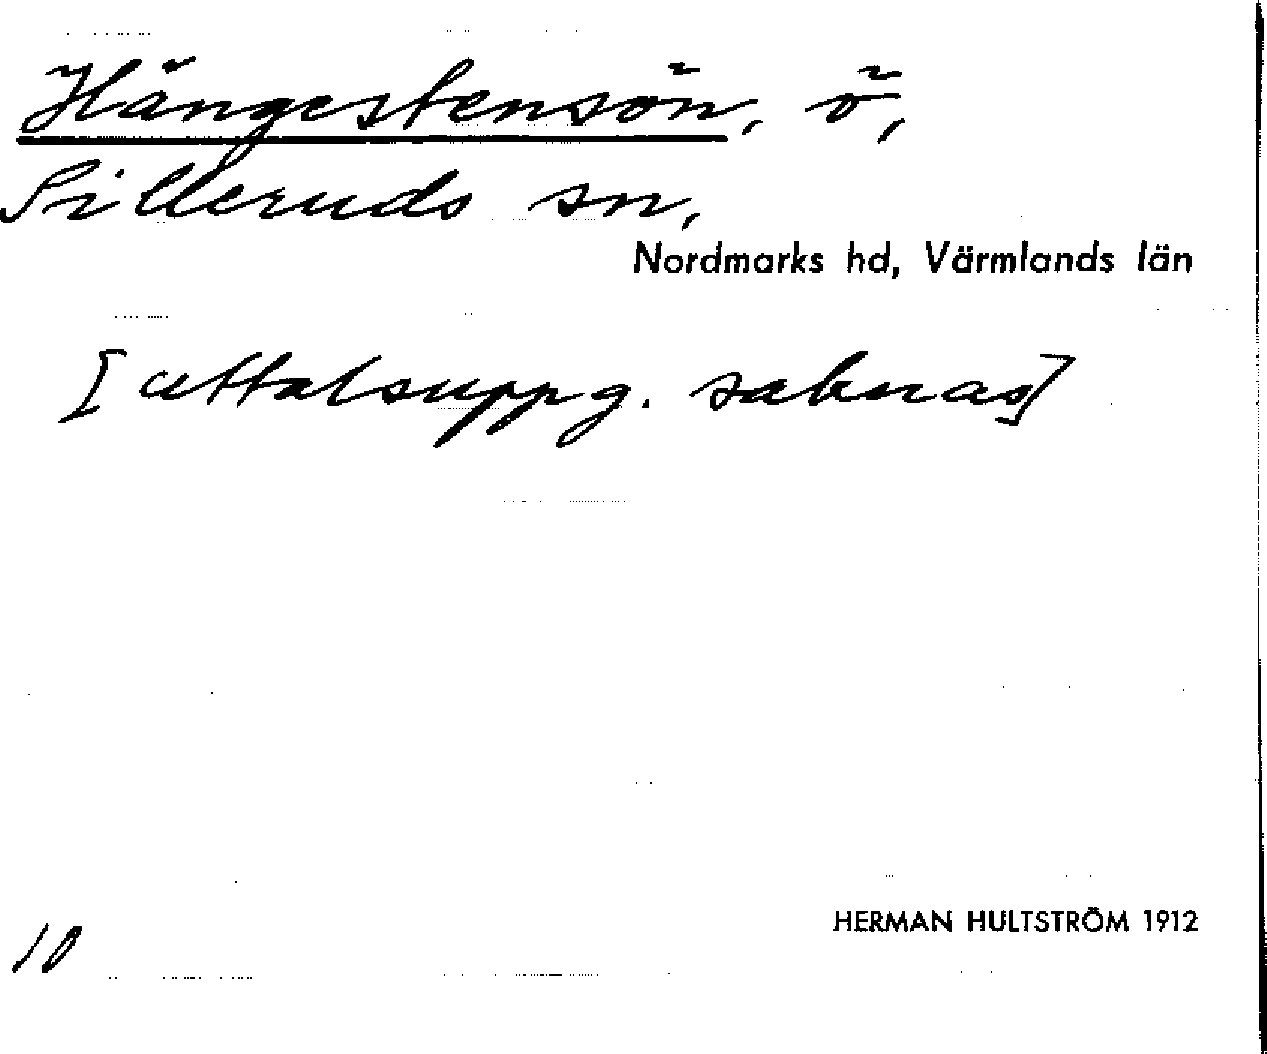 Hängestensön, ö,
Silleruds sn,
Nordmarks hd, Värmlands län
[uttalsuppg. saknas]
HERMAN HULTSTRÖM 1912
10